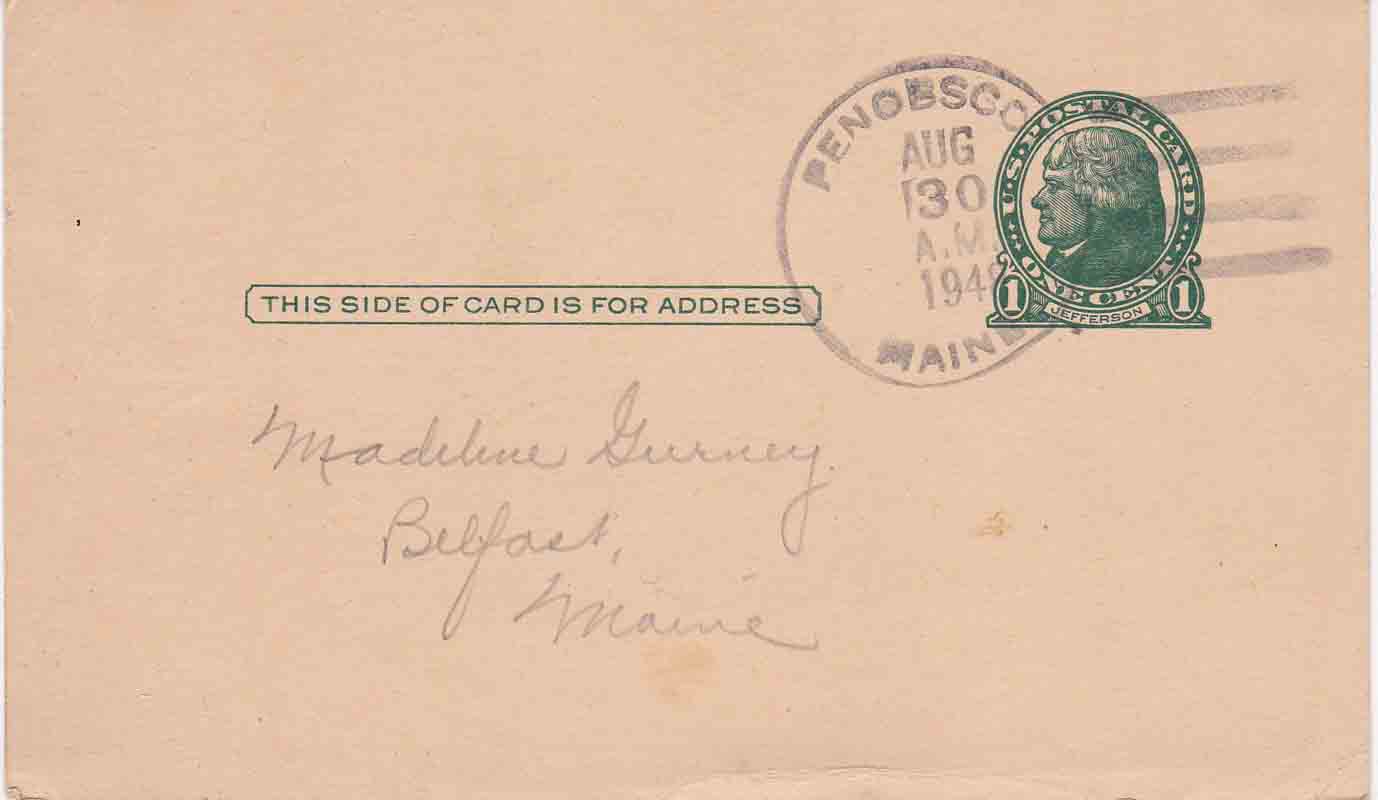 PENOBSCO
AUG
30
A.M.
1948
MAINE
U.S. POSTAL CARD
ONE CENT
1 JEFFERSON 1
THIS SIDE OF CARD IS FOR ADDRESS
Madeline Gurney
Belfast,
Maine